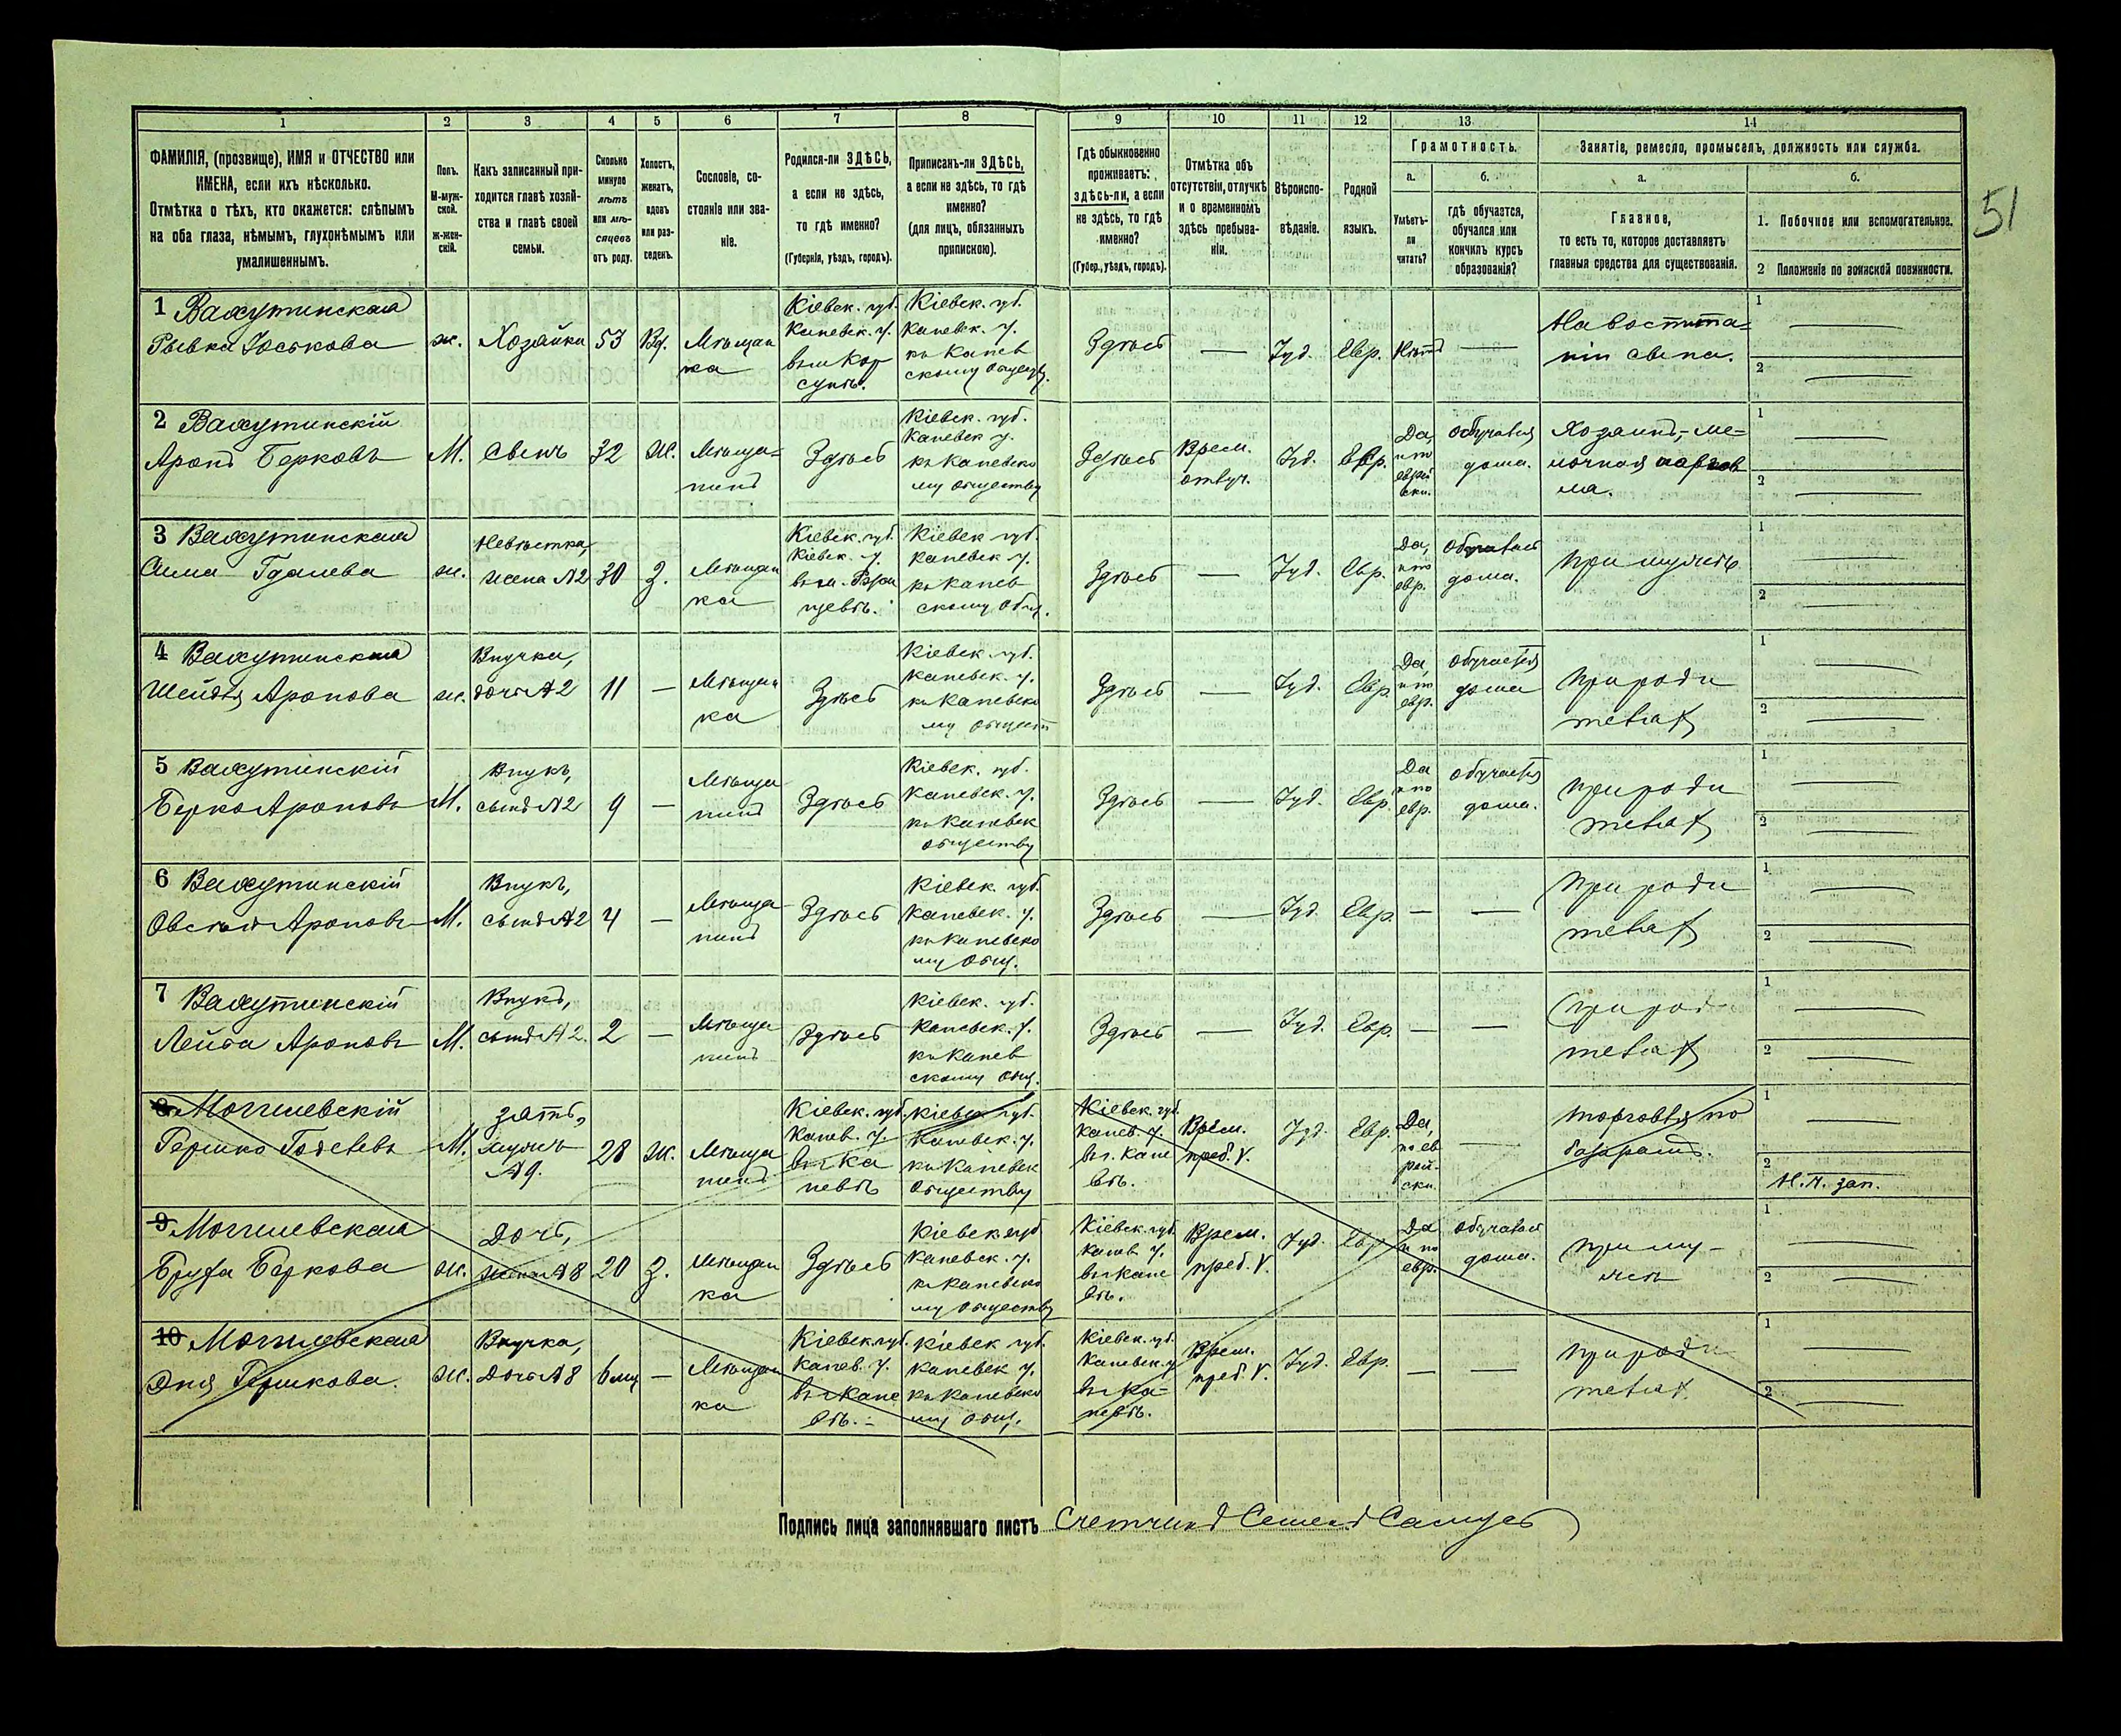 51
1 2 3 4 5 6 7 8 9 10 11 12 13 14
ФАМИЛІЯ, (прозвище), ИМЯ и ОТЧЕСТВО или
ИМЕНА, если ихъ нѣсколько.
Отмѣтка о тѣхъ, кто окажется: слѣпымъ
на оба глаза, нѣмымъ, глухонѣмымъ или
умалишеннымъ.
Полъ.
М-муж-
ской.
ж-жен-
скій.
Какъ записанный при-
ходится главѣ хозяй-
ства и главѣ своей
семьи.
Сколько
минуло
лѣтъ
или мѣ-
сяцевъ
отъ роду.
Холостъ,
женатъ,
вдовъ
или раз-
веденъ.
Сословіе, со-
стояніе или зва-
ніе.
Родился-ли ЗДѢСЬ,
а если не здѣсь,
то гдѣ именно?
(Губернія, уѣздъ, городъ).
Приписанъ-ли ЗДѢСЬ,
а если не здѣсь, то гдѣ
именно?
(для лицъ, обязанныхъ
припискою).
Гдѣ обыкновенно
проживаетъ:
здѣсь-ли, а если
не здѣсь, то гдѣ
именно?
(Губер., уѣздъ, городъ).
Отмѣтка объ
отсутствіи, отлучкѣ
и о временномъ
здѣсь пребыва-
ніи.
Вѣроиспо-
вѣданіе.
Родной
языкъ.
Грамотность.
а. б.
Умѣетъ-
ли
читать?
гдѣ обучается,
обучался или
кончилъ курсъ
образованія?
Занятіе, ремесло, промыселъ, должность или служба.
а. б.
Главное,
то есть то, которое доставляетъ
главныя средства для существованія.
1. Побочное или вспомогательное.
2 Положеніе по воинской повинности.
1 Вахутинская
Рывка Іоськова
ж.
Хозяйка
53
Вд.
Мѣщан
ка
Кіевск. губ.
Каневск. у.
въ м Кор
сунѣ.
Кіевск. губ.
Каневск. у.
къ Канев
скому обществу.
Здѣсь
—
Іуд.
Евр.
Нѣтъ
—
На воспита-
ніи сына.
1 —
2 —
2 Вахутинскій
Аронъ Берковъ
М.
сынъ
32
Ж.
Мѣща-
нинъ
Здѣсь
Кіевск. губ.
Каневск у.
къ Каневско
му обществу
Здѣсь
Врем.
отлуч.
Іуд.
Евр.
Да,
и по
еврей
ски.
обучался
дома.
Хозяинъ, ме-
лочная торгов
ля.
1 —
2 —
3 Вахутинская
Сима Гдалева
ж.
Невѣстка,
жена №2
30
З.
Мѣщан
ка
Кіевск. губ.
Кіевск. у.
Кіевск губ.
Каневск у.
къ Канев
скому общ.
Здѣсь
—
Іуд.
Евр.
Да,
и по
евр.
Обучалась
дома.
При мужѣ
1 —
2 —
4 Вахутинская
Шейндя Аронова
ж.
Внучка,
дочь №2
11
—
Мѣщан
ка
Здѣсь
Кіевск. губ.
Каневск. у.
къ Каневско
му общест
Здѣсь
—
Іуд.
Евр.
Да
и по
евр.
обучается
дома
При роди
теляхъ
1 —
2 —
5 Вахутинскій
Берко Ароновъ
М.
Внукъ,
сынъ №2
9
—
Мѣща
нинъ
Здѣсь
Кіевск. губ.
Каневск. у.
къ Каневск
обществу
Здѣсь
—
Іуд.
Евр.
Да
и по
евр.
обучается
дома.
При роди
теляхъ
1 —
2 —
6 Вахутинскій
Овсѣй Ароновъ
М.
Внукъ,
сынъ №2
4
—
Мѣща
нинъ
Здѣсь
Кіевск. губ.
Каневск. у.
къ Каневско
му общ.
Здѣсь
—
Іуд.
Евр.
—
—
При роди
теляхъ
1 —
2 —
7 Вахутинскій
Лейба Ароновъ
М.
Внукъ,
сынъ №2.
2
—
Мѣща
нинъ
Здѣсь
Кіевск. губ.
Каневск. у.
къ Канев
скому общ.
Здѣсь
—
Іуд.
Евр.
—
—
При роди
теляхъ
1 —
2 —
8 Могилевскій
Гершко
М.
зять,
мужъ
№9.
28
Ж.
Мѣща
нинъ
Кіевск. губ.
Канев. у.
въ г Ка
невѣ
Кіевск губ.
Каневск. у.
къ Каневск
обществу
Кіевск. губ.
Канев. у.
въ г. Кане
вѣ.
Врем.
преб. V.
Іуд.
Евр.
Да,
по ев
рей-
ски.
—
Торговля по
базарамъ.
1 —
2
Н.ч. зап.
9 Могилевская
Беркова
ж.
Дочь,
жена №8
20
З.
Мѣщан
ка
Здѣсь
Кіевск губ
Каневск. у.
къ Каневско
му обществу
Кіевск. губ
Канев у.
въ г Кане
вѣ.
Врем.
преб. V.
Іуд.
Евр
Да
и по
евр.
Обучалась
дома.
При му-
жѣ
1 —
2 —
10 Могилевская
Эня Гершкова.
Ж.
Внучка,
Дочь №8
6 мц
—
Мѣщан
ка
Кіевск. губ.
Канев. у.
въ г Кане
вѣ.
Кіевск губ.
Каневск у.
къ Каневско
му общ.
Кіевск. губ.
Каневск. у
въ г Ка-
невѣ.
Врем.
преб. V.
Іуд.
Евр.
—
—
При роди
теляхъ.
1 —
2 —
Подпись лица заполнявшаго листъ Счетчикъ Семенъ